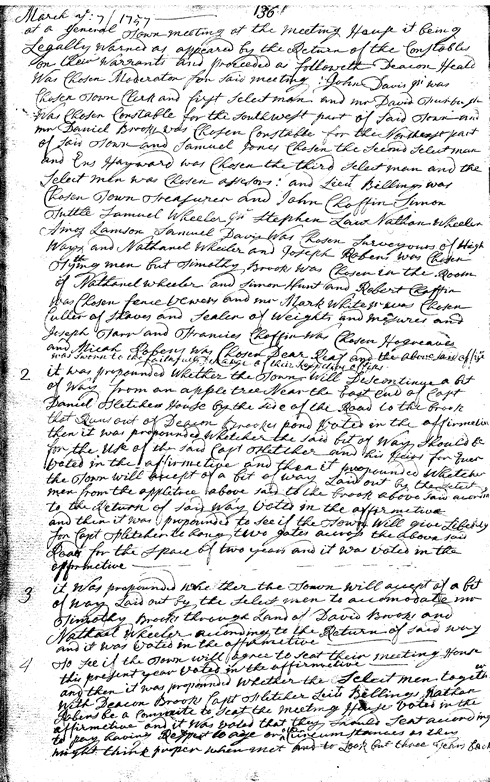 136
March ye: 7 / 1757
at a General Town meeting at the meeting House it being
Legally warned as appeared by the Return of the Constables
on their warrants and proceeded as followeth Deacon Heald
Was Chosen Moderator for said meeting: John Davis Jr was
Chosen Town Clerk and first select man and mr David
Was Chosen Constable for the Southwest part of said Town and
mr Daniel Brooks was Chosen Constable for the Northeast part
of said Town and Samuel Jones Chosen the Second Select man
and Ens Hayward was Chosen the third Select man and the
Select men was Chosen assesors: and Lieut Billings was
Chosen Town Treasurer and John Chaffin Simon
Tuttle Samuel Wheeler Jr Stephen Law Nathan Wheeler
Amos Lamson Samuel Davis Was Chosen Surveyours of High
Ways and Nathanel Wheeler and Joseph Robens was Chosen
Tything men but Timothy Brook was Chosen in the Room
of Nathanel wheeler and Simon Hunt and Robert Chaffin
Was Chosen fence vewers and mr Mark White Jr was Chosen
Culler of Staves and Sealer of Weights and mesures and
Joseph and Francies Chaffin was Chosen Hogreaves
and Micah Robens was Chosen Dear Reaf and the above said
was sworn to the faithfull of their Respective offices
2 it was propounded Whether the Town Will Descontinue a bit
of Way from an appletree Near the East end of Capt
Daniel Fletchers House by the side of the Road to the brook
that Runs out of Deacon Brooks pond Voted in the affirmetive
then it was propounded Whetcher the said bit of Way Should be
for the Use of the said Capt Fletcher and his Heirs for Ever
Voted in the affirmetive and then it propounded Whetcher
the Town will accept of a bit of way Laid out by the Select
men from the appletree above said to the brook above said
to the Return of said Way Voted in the affirmetive
and then it was propounded to see if the Town Will give Liberty
for Capt Fletcher to hang two gates across the above said
Road for the Space of two years and it was Voted in the
affirmetive
3 it Was propounded whether the Town will accept of a bit
of way Laid out by the Select men to accomodate mr
Timothy Brooks through Land of David Brooks and
Nathael Wheeler according to the Return of said way
and it was Voted in the affirmetive
4 To see if the Town will agree to Seat their meeting House
this present year Voted in the affirmetive
and then it was propounded Whether the Select men together
With Deacon Brooks Capt Fletcher Leit Billings Nathan
Robins be a Commite to Seat the meeting House Voted in the
affirmetive and it was Voted that they should Seat according
to pay having Respect to age or other Circumstances as they
might think proper when met and to Look but three years Back